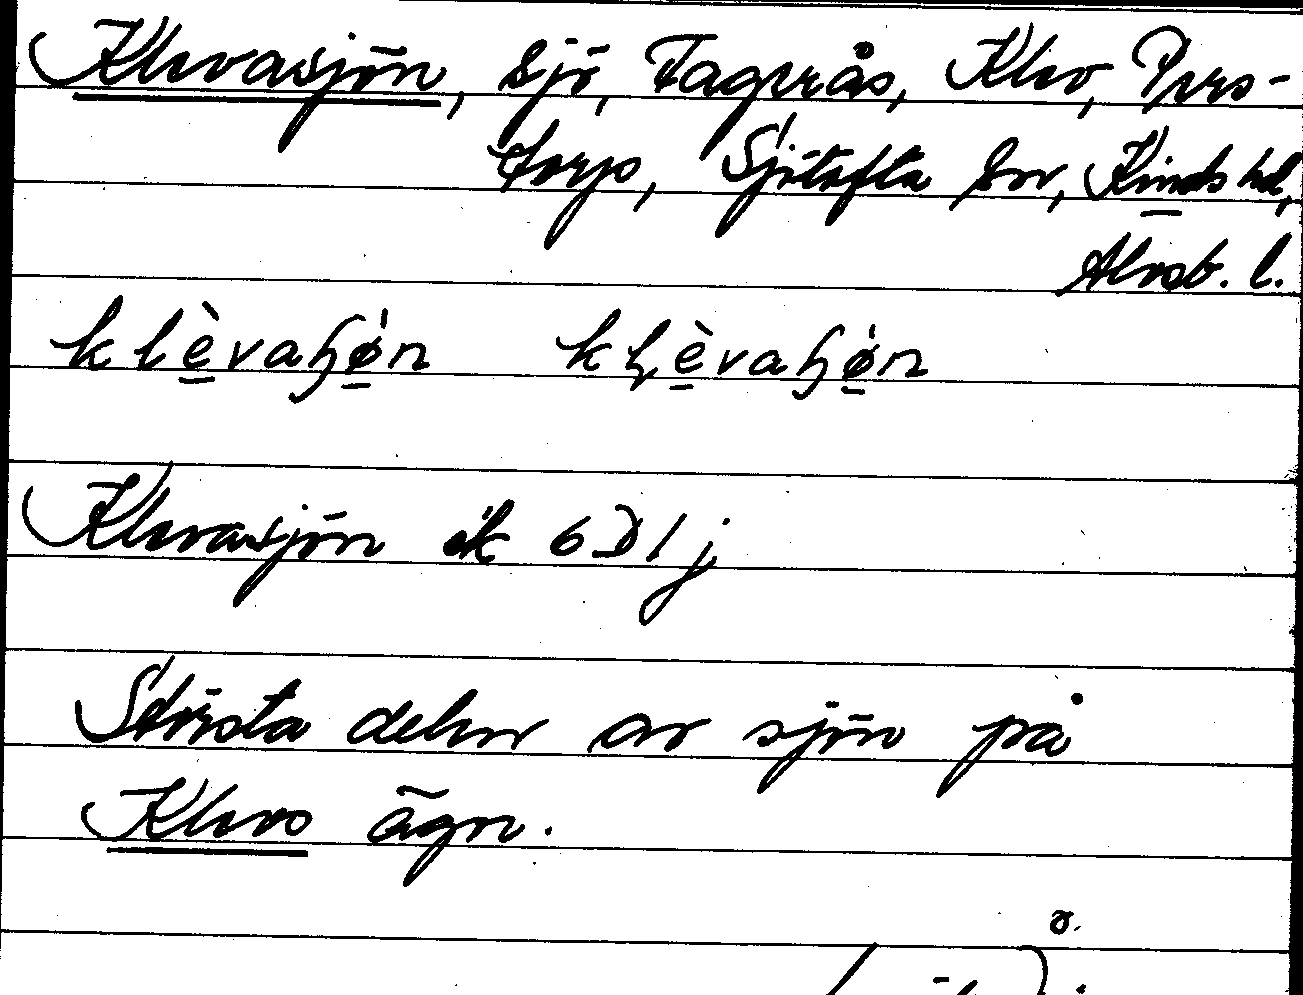 Klevasjön, sjö, Fagerås, Klev, Pers-
torp, Sjötofta sn, Kinds hd,
Älvsb. l.
klèvaɧø̀n kɭèvaɧø̀n
Klevasjön ek 6D1j
Största delen av sjön på
Klevs ägor.